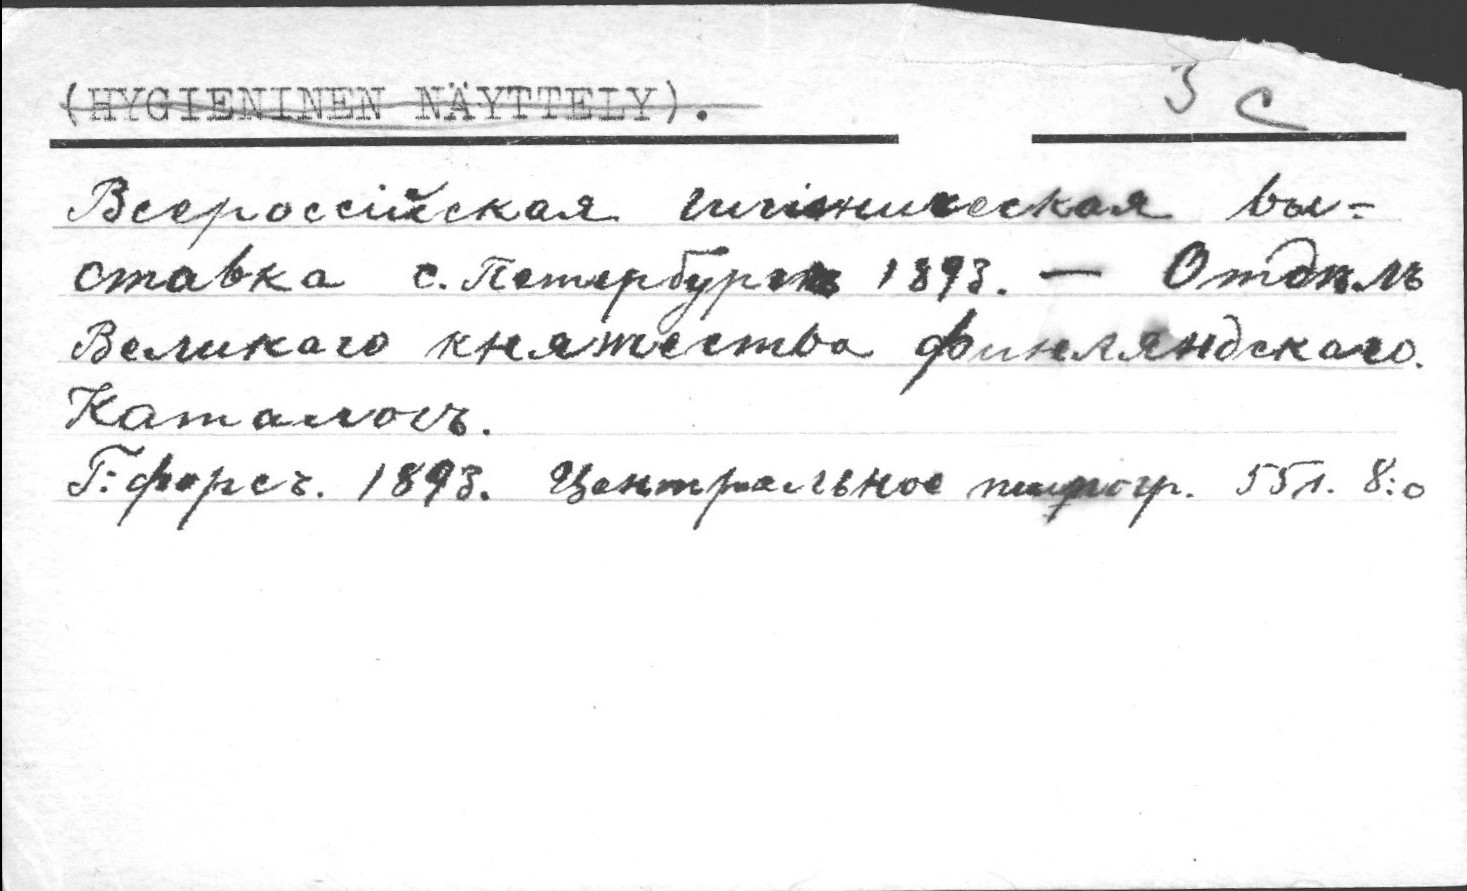 (HYGIENINEN NÄYTTELY). 3 c
Всероссійская гигіеническая вы=
ставка С. Петербургъ 1893. — Отдѣлъ
Великаго княжества Финляндскаго.
Каталогъ.
Г:форсъ. 1893. Центральное типогр. 55 л. 8:о